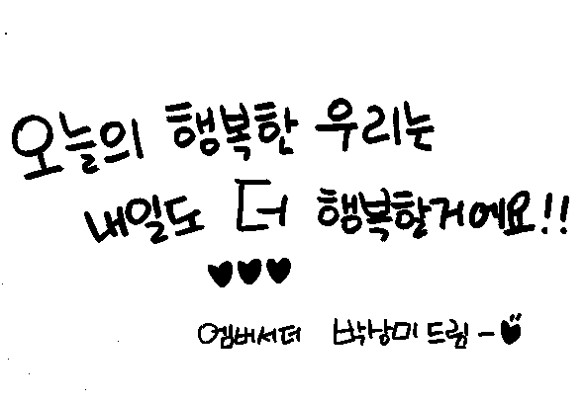 오늘의 행복한 우리는
내일도 더 행복할거에요!!
♥♥♥
엠버서더 박상미 드림 - ♥